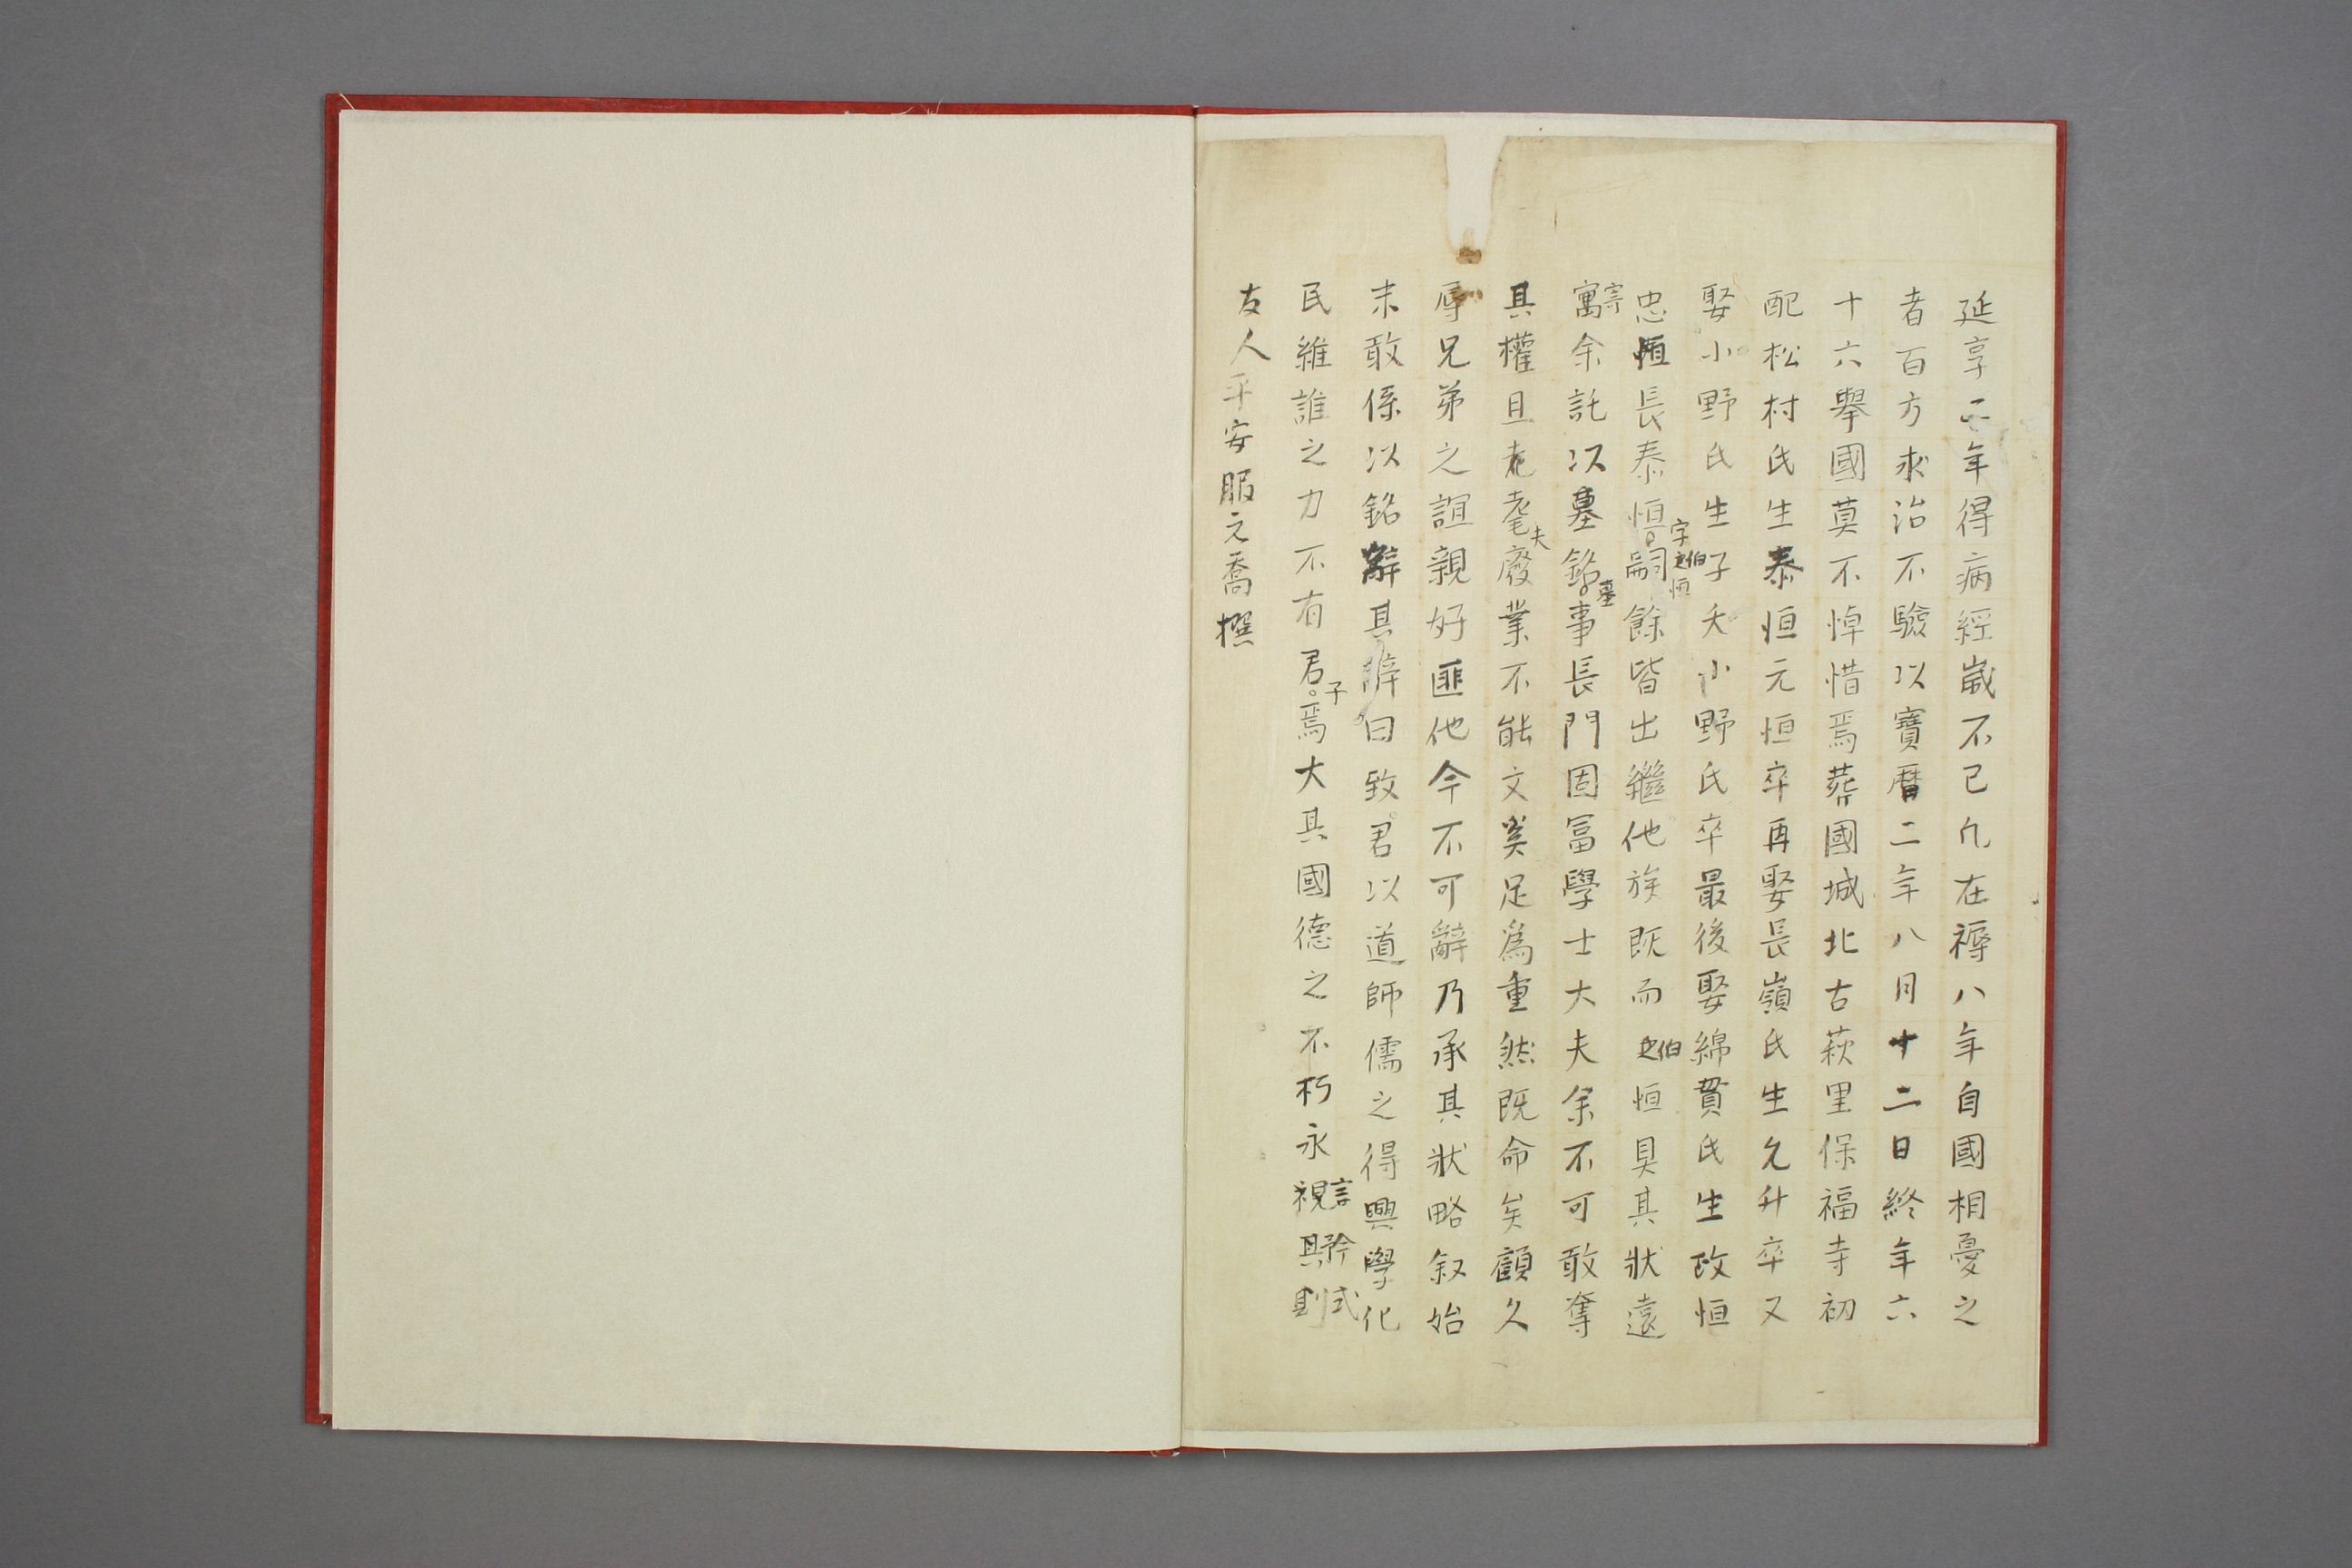 延享二年得病經歲不已凡在褥八年自國相憂之
者百方求治不驗以寶曆二年八月十二日終年六
十六舉國莫不悼惜焉葬國城北古萩里保福寺初
配松村氏生泰恒元恒卒再娶長嶺氏生允升卒又
娶小野氏生子夭小野氏卒最後娶綿貫氏生政恒
字伯恒
忠恒長泰恒嗣餘皆出繼他族既而伯恒具其狀遠
寄
寓余託以墓銘事長門固富學士大夫余不可敢奪
墓
其權且老耄廢業不能文奚足爲重然既命矣顧久
夫
辱兄弟之誼親好匪他今不可辭乃承其狀略叙始
末敢係以銘辭其辭曰致君以道師儒之得興學化
民維誰之力不有君焉大其國德之不朽永視其則
子
言
矜
式
友人平安服元喬撰